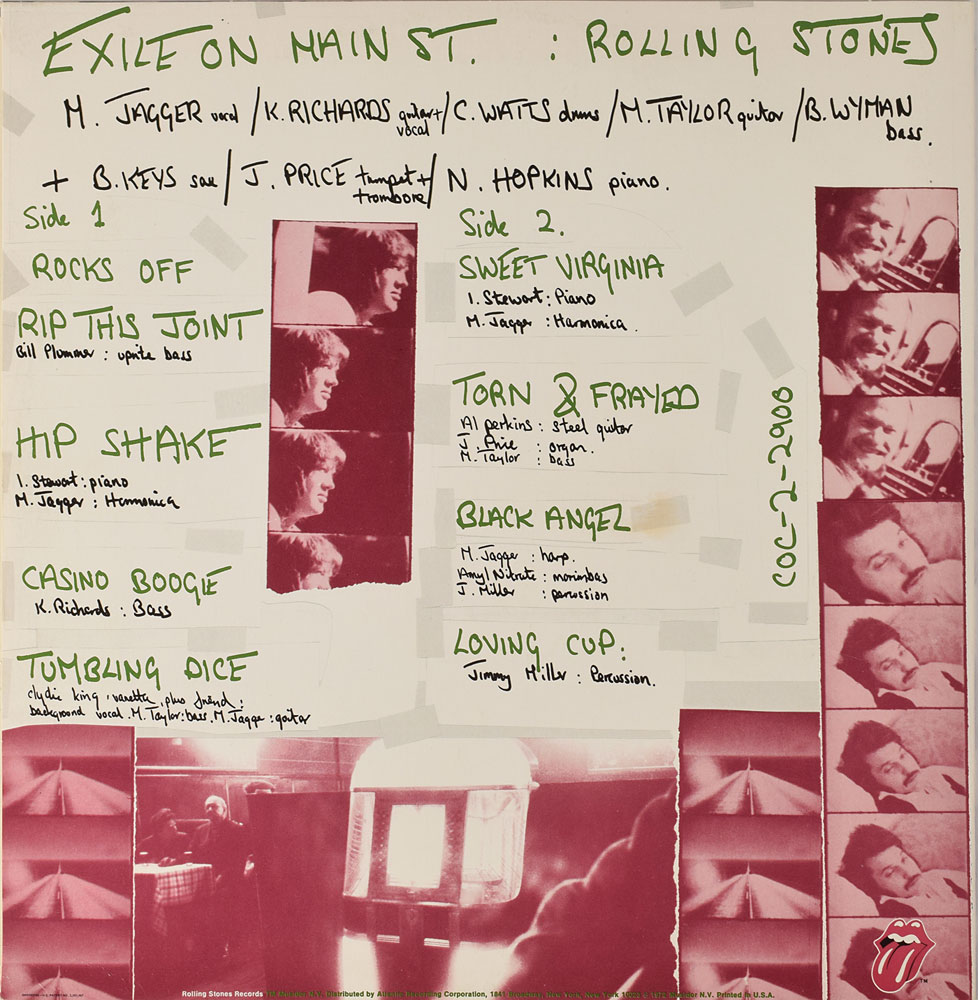 EXILE ON MAIN ST. : ROLLING STONES
M. JAGGER vocal / K. RICHARDS guitar + vocal / C. WATTS drums / M. TAYLOR guitar / B. WYMAN bass.
+ B. KEYS sax / J. PRICE trumpet + trombone / N. HOPKINS piano.
Side 1
ROCKS OFF
RIP THIS JOINT
Bill Plummer : uprite bass
HIP SHAKE
I. Stewart : piano
M. Jagger : Harmonica
CASINO BOOGIE
K. Richards : Bass
TUMBLING DICE
clydie king, vanetta, plus friend :
background vocal. M. Taylor: bass. M. Jagger : guitar
Side 2.
SWEET VIRGINIA
I. Stewart : Piano
M. Jagger : Harmonica.
TORN & FRAYED
Al perkins : steel guitar
J. Price : organ.
M. Taylor : bass
BLACK ANGEL
M. Jagger : harp.
Amyl Nitrate : marimbas
J. Miller : percussion
LOVING CUP:
Jimmy Miller : Percussion.
COC-2-2900
Rolling Stones Records Distributed by Atlantic Recording Corporation, 1841 Broadway, New York, New York N.V. Printed in U.S.A.
TM